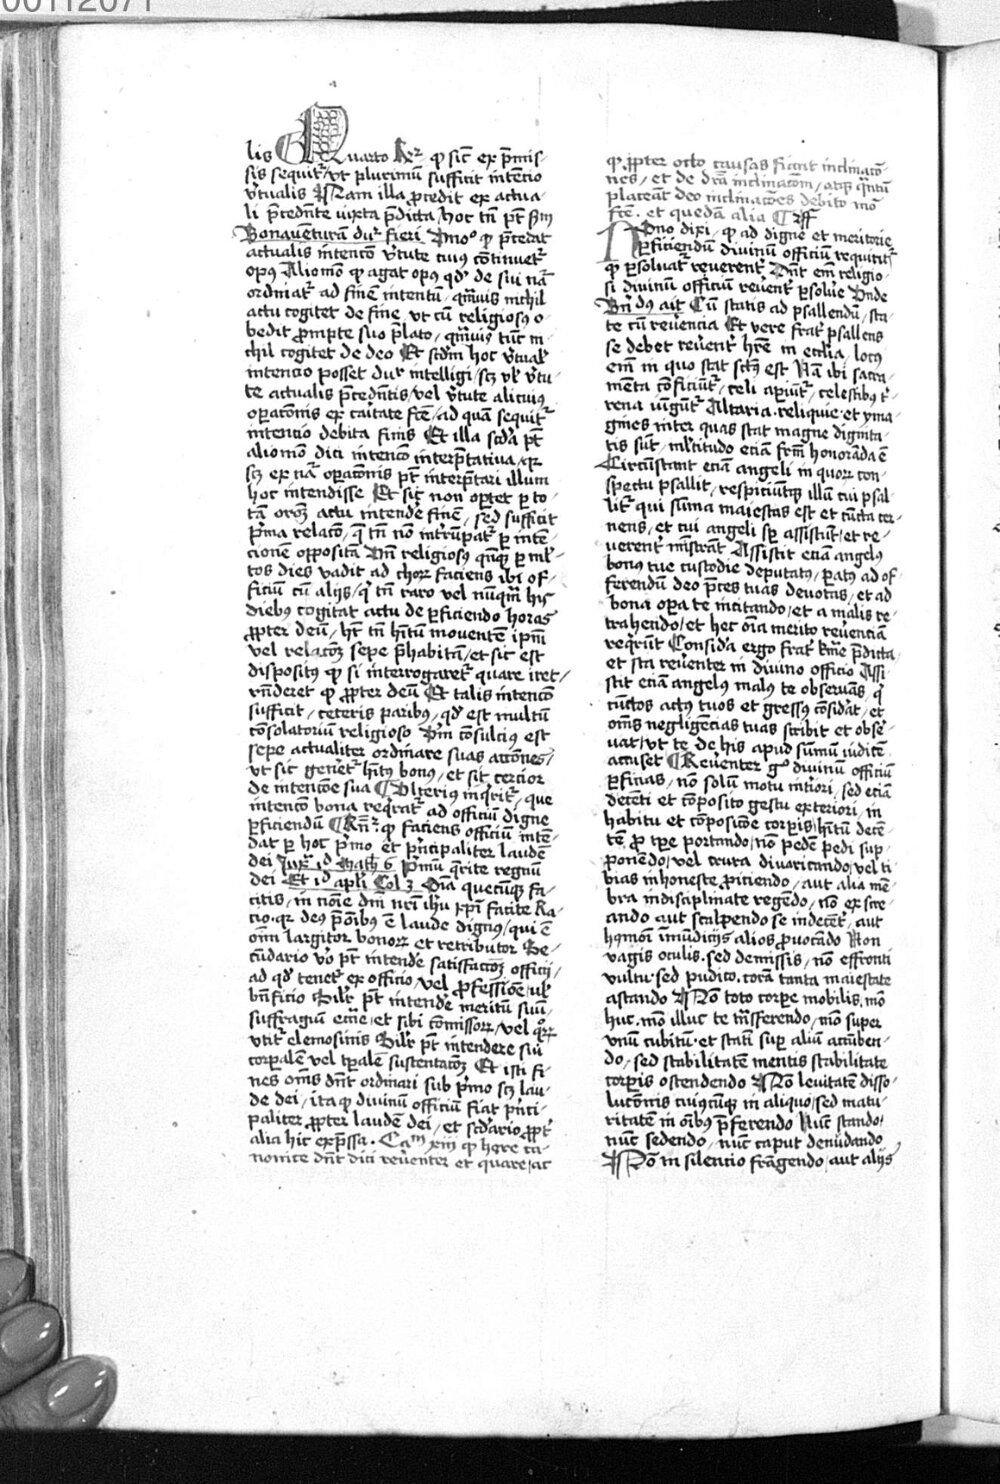 00112071
lis Quarto Rr qꝫ sic̄ ex p̄mis-
sis sequit̉ / vt plurimū sufficit intēcio
v̉tualis Nam illa p̄cedit ex actua-
li p̄cedn̄te iuxta p̄dicta / hoc tn̄ pt̄ scd̄m
Bonauēturā dupl̉r fieri Vno° qꝫ p̄cedat
actualis intencō v̉tute cuiꝰ cōtinuet̉
opꝰ Alio mō qꝫ agat opꝰ qd̓ de sui nā
ordinat̉ ad finē intentū / qm̄uis nichil
actu cogitet de fine / vt cū religiosꝰ o-
bedit p̄mpte suo p̄lato / qm̄uis tūc ni-
chil cogitet de deo Et scd̄m hoc v̉tual̉
intencio posset dupl̉r intelligi / scꝫ vl̓ v̉tu-
te actualis p̄cedn̄tis / vel v̉tute alicuiꝰ
oꝑacōnis ex caritate fc̄e / ad quā sequit̉
intencio debita finis Et illa scd̄a pt̄
alio mō dici intencō interp̄tatiua / qꝛ
scꝫ ex nā oꝑacōnis pt̄ interp̄tari illum
hoc intendisse Et sic̄ non oꝑtet ꝑ to-
tā orōꝫ actu intende finē / sed sufficit
p̄ma relacō / q̄ tn̄ nō int̉rūpat̉ ꝑ inte-
cionē oppositā Vn̄ religiosꝰ qn̄qꝫ ꝑ ml̓-
tos dies vadit ad chorꝫ faciens ibi of-
ficiū cū alijs / qꝫ tn̄ raro vel nūqm̄ his
diebꝰ cogitat actu de ꝑficiendo horas
ꝓpter deū / hꝫ tn̄ hitū mouentē ipm̄
vel relacōꝫ sepe p̄habitā / et sic est
dispositꝰ qꝫ si interrogaret̉ quare iret /
rn̄deret qꝫ ꝓpter deū Et talis intencō
sufficit / ceteris paribꝰ / qd̓ est multū
cōsolatoriū religioso Vn̄ cōsulciꝰ est
sepe actualiter ordinare suas accōnes /
vt sic gen̉et̉ hitꝰ bonꝰ / et sit cercior
de intencōe sua ¶ Vlteriꝰ inq̄rit̉ / que
intencō bona req̄rat̉ ad officiū digne
ꝑficiendū ¶ Rn̄r qꝫ faciens officiū intē-
dat ꝑ hoc p̄mo et p̄ncipaliter laudē
dei Iux̉ id Math̓ 6 p̄mū q̄rite regnū
dei Et id apl̓i Col 3 Oīa quecūqꝫ fa-
citis / in noīe dn̄i nr̄i ihū xp̄i facite Ra-
cio qꝛ deꝰ p̄ oībꝰ ē laude dignꝰ / qui ē
oīm largitor bonoꝝ et retributor Se-
cūdario v̉o pt̄ intende satisfactōꝫ officii /
ad qd̓ tenet̉ ex officio / vel ꝓfessiōe / vl̓
bn̄ficio Sil̓r pt̄ intende meritū suū /
suffragiū ecc̄ie / et sibi cōmissoꝝ / vel
vtit̉ elemosinis Sil̓r pt̄ intendere sui
corꝑalē vel tp̄alē sustentacōꝫ Et isti fi-
nes om̄s dn̄t ordinari sub p̄mo scꝫ lau-
de dei / ita qꝫ diuinū officiū fiat p̄nci-
paliter ꝓpter laudē dei / et scd̄ario ꝓpt̉
alia hic exp̄ssa . Cam xiii qꝫ hore ca-
nonice dn̄t dici reu̓enter et quare / ac
qꝫ ꝓpter octo causas fiant inclinacō-
nes / et de dr̄ā inclinacōm / atqꝫ q̄ntū
placeāt deo inclinacōes debito mō
fc̄e . et quedā alia ¶
Vno dixi / qꝫ ad digne et meritorie
ꝑficiendū diuinū officiū requirit̉
qꝫ ꝑsoluat̉ reuerent̉ Dn̄t em̄ religio-
si diuinū officiū reu̓ent̉ ꝑsolue Vnde
Bn̄dꝰ ait Cū statis ad psallendū / sta-
te cū reu̓encia Et vere frat̉ psallens
se debet reu̓ent̉ hr̄e in ecc̄lia / locꝰ
em̄ in quo stat sctꝰ est Nā ibi sacra-
mēta cōficiūt̉ / celi aꝑiūt̉ / celestibꝰ t̉-
rena iūgūt̉ Altaria . reliquie . et yma-
gines inter quas stat magne dignita-
tis sūt / ml̓titudo eciā frm̄ honorāda ē
Circūstant eciā angeli in quoꝝ con-
spectu psallit / respiciūtqꝫ illū cui psal-
lit̉ qui sūma maiestas est et cūcta cer-
nens / et cui angeli sꝑ assistūt / et re-
uerent̉ mīstrāt Assistit eciā angelꝰ
bonꝰ tue custodie deputatꝰ / paratꝰ ad of-
ferendū deo p̄ces tuas deuotas / et ad
bona oꝑa te incitando / et a malis re-
trahendo / et hec oīa merito reu̓enciā
req̄rūt Considera ergo frat̉ kme p̄dicta
et sta reu̓enter in diuino officio Assi-
stit eciā angelꝰ malꝰ te obseruās / qꝫ
cūctos actꝰ tuos et gressꝰ cōsiderat / et
om̄s negligēcias tuas scribit et obser-
uat / vt te de his apud sūmū iudicē
accuset ¶ Reu̓enter gͦ diuinū officiū
ꝑficias / nō solū motu inter̉iori / sed eciā
decēti et cōposito gestu exteriori / in
habitu et cōposicōe corꝑis / hitū decē-
tē ꝓ tꝑe portando / nō pedē pedi sup-
ponēdo / vel crura diuaricando / vel ti-
bias inhoneste ꝓiciendo / aut alia mē-
bra indisciplinate regēdo / nō ex scre-
ando aut sculpendo se indecēt̉ / aut
hꝰmōi īmūdicijs alios ꝓuocādo Non
vagis oculis . sed demissis / nō effronti
vultu . sed pudico . corā tanta maiestate
astando Nō toto corꝑe mobilis . mō
huc . mō illuc te trāsferendo / mō super
vnū cubitū . et statī suꝑ aliū accūben-
do / sed stabilitatē mentis stabilitate
corꝑis ostendendo Nō leuitatē disso-
lucōnis cuiꝰcūqꝫ in aliquo / sed matu-
ritatē in oībꝰ p̄ferendo Nūc stando /
nūc sedendo / nūc caput denudando
Nō in silencio frāgendo / aut alijs